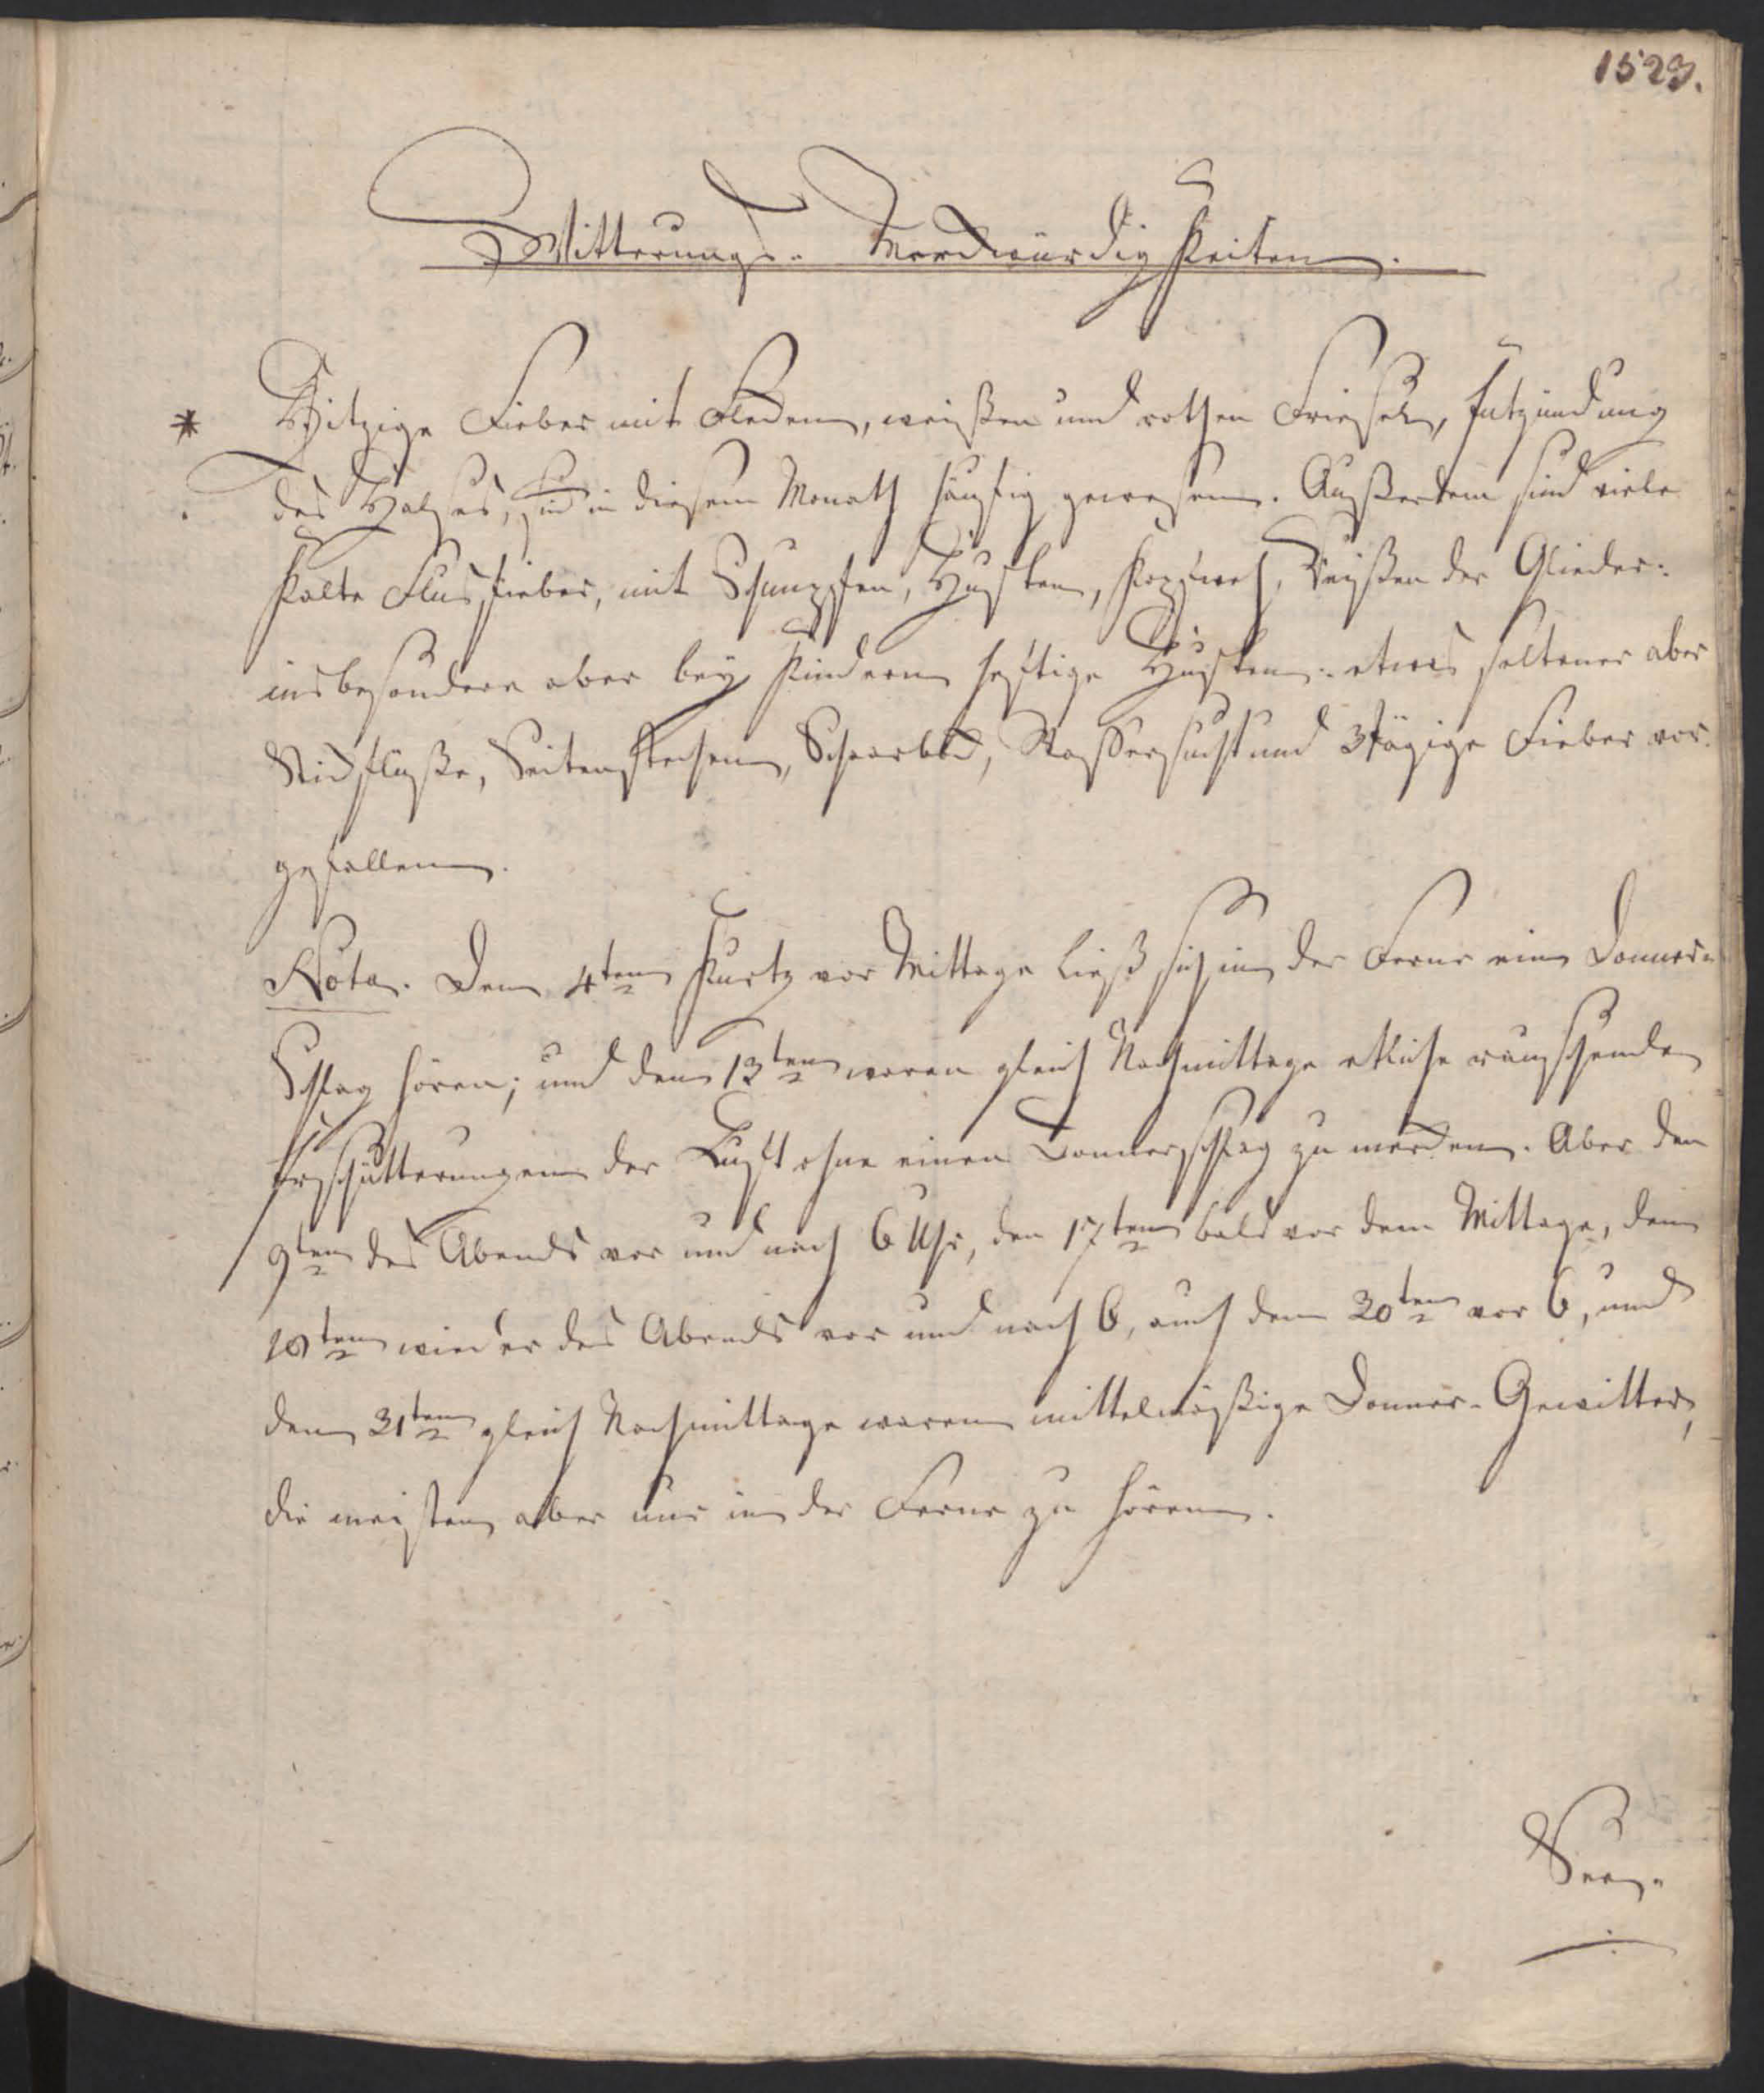 1523.
Witterungs- Merckwürdigkeiten.
* Hitzige Fieber mit Flecken, weißen und rothen Friesel, Entzündung
des Halses, sind in diesem Monath häufig gewesen. Außerdem sind viele
kalte Flusfieber, mit Schnupfen, Husten, Kopfweh, Reißen der Glieder:
insbesondere aber bey Kindern heftige Husten: etwas seltener aber
Stickflüße, Seitenstechen, Scharbock, Waßersucht und 3tägige Fieber vor
gefallen.
Nota. Den 4ten kurtz vor Mittage ließ sich in der Ferne ein Donner-
Schlag hören; und den 13ten waren gleich Nachmittage etliche rauschende
Erschütterungen der Luft ohne einen Donnerschlag zu mercken. Aber den
9ten des Abends vor und nach 6 Uhr, den 17ten bald vor dem Mittage, den
wieder des Abends vor und nach 6, auch den 30ten vor 6, und
den 31ten gleich Nachmittage waren mittelmäßige Donner-Gewitter,
die meisten aber nur in der Ferne zu hören.